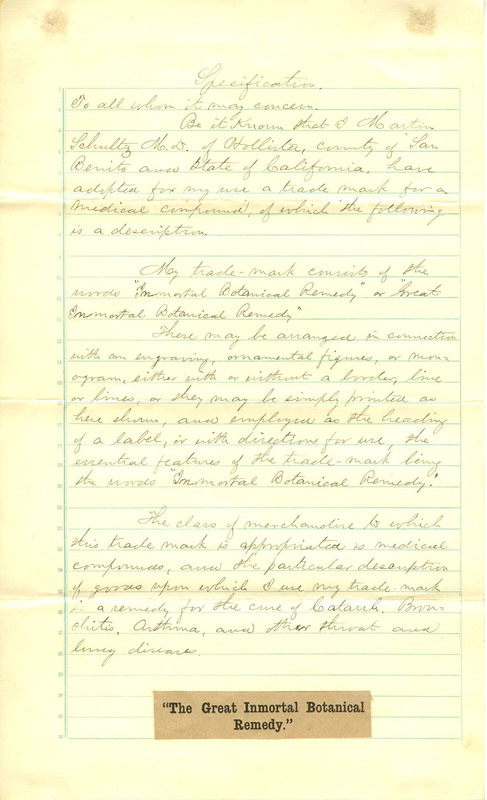 Specification.
To all whom it may concern.
Be it Known that I Martin
Schultz M.D. of Hollister, county of San
Benito and State of California. have
adopted for my use a trade mark for a
medical compound, of which the following
is a description.
My trade-mark consists of the
words "Inmortal Botanical Remedy" or "Great
Inmortal Botanical Remedy"
These may be arranged in connection
with an engraving, ornamental figures, or mon-
ogram, either with or without a border, line
or lines, or they may be simply printed as
here shown, and employed as the heading
of a label, or with directions for use, the
essential features of the trade-mark being
the words "Inmortal Botanical Remedy."
The class of merchandise to which
this trade mark is appropriated is medical
compounds, and the particular description
of goods upon which I use my trade-mark
is a remedy for the cure of Catarrh. Bron-
chitis, Asthma, and other throat and
lung diseases.
"The Great Inmortal Botanical
Remedy."